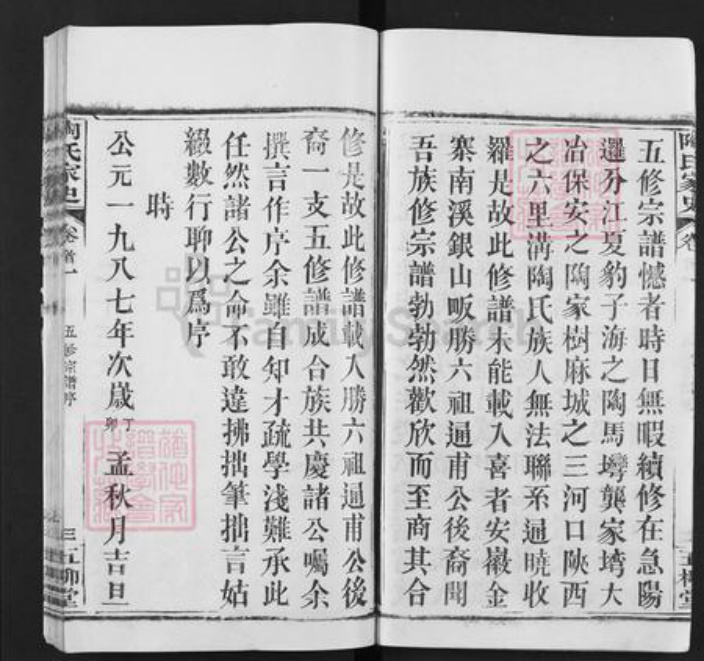 五修宗譜憾者時日無暇續修在急陽
邏分江夏豹子海之陶馬塆龔家塆大
冶保安之陶家樹麻城之三河口陝西
之六里溝陶氏族人無法聯系通曉收
羅是故此修譜未能載入喜者安徽金
寨南溪銀山畈勝六祖通甫公後裔聞
吾族修宗譜勃勃然歡欣而至商其合
修是故此修譜載入勝六祖通甫公後
裔一支五修譜成合族共慶諸公囑余
撰言作序余雖自知才疏學淺難承此
任然諸公之命不敢違拂拙筆拙言姑
綴數行聊以爲序
時
公元一九八七年次歲丁卯孟秋月吉旦
陶氏家史
卷首一
五修宗譜序
三
五柳堂
FamilySearch